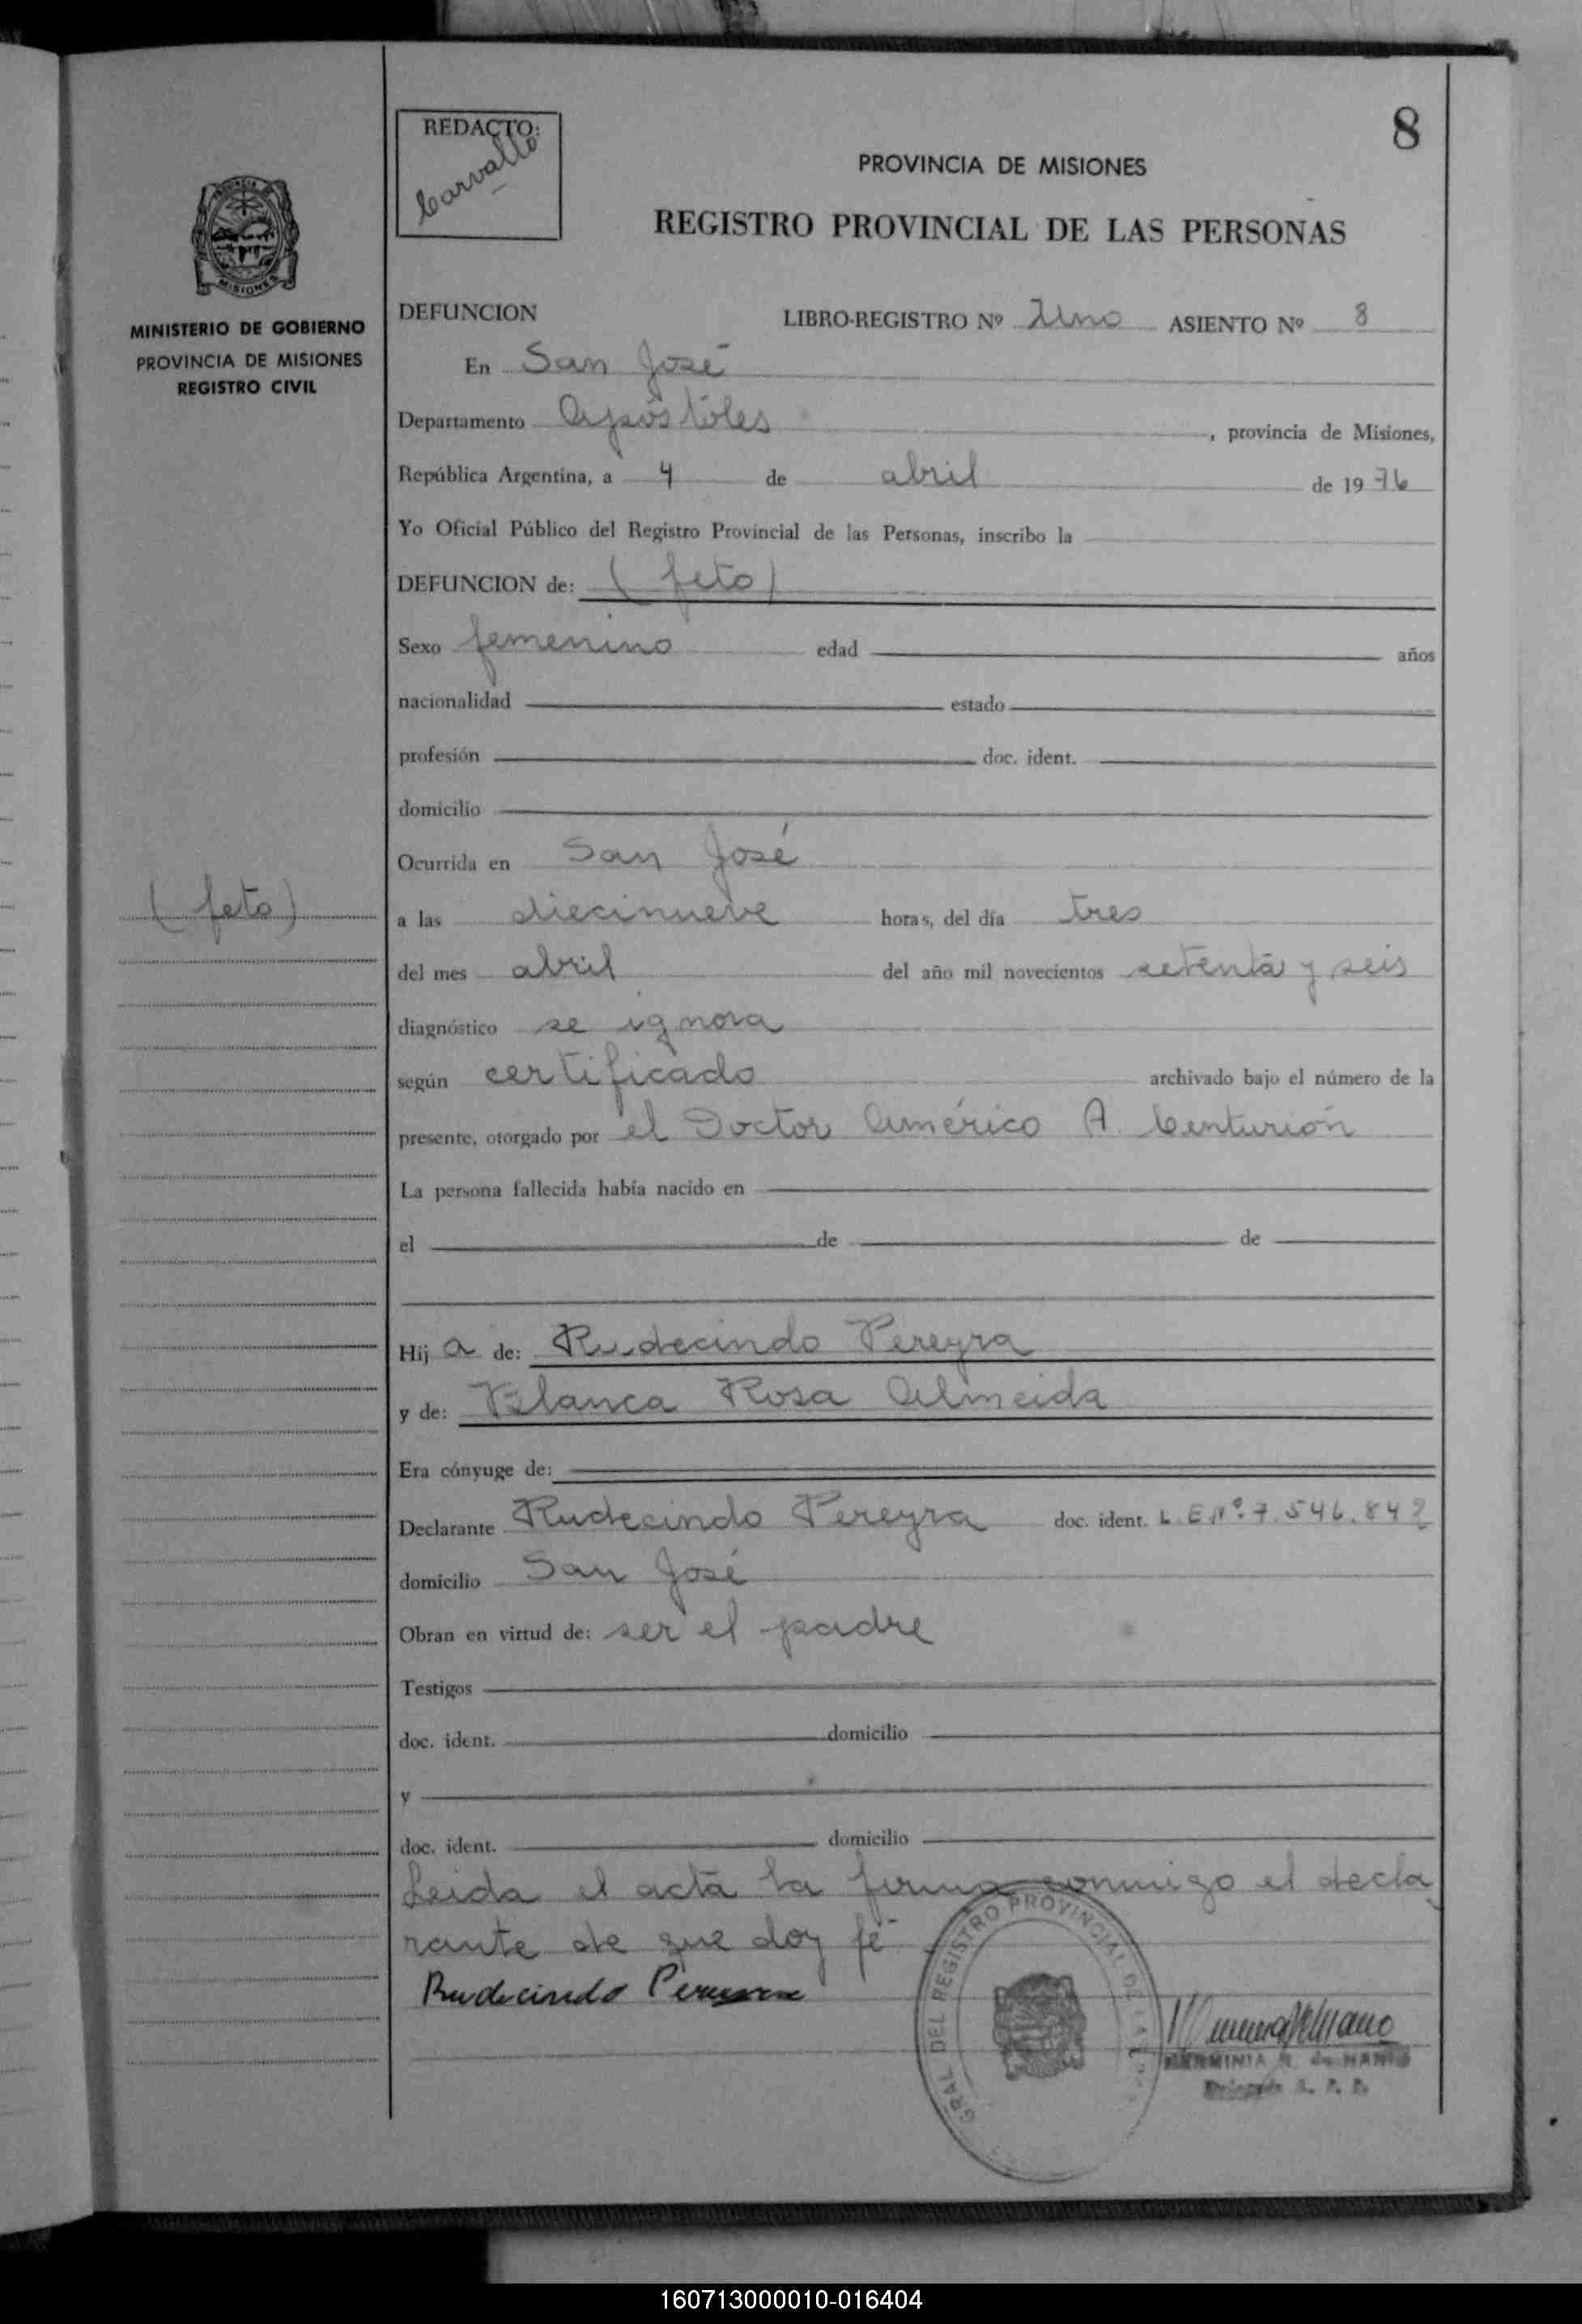 8
REDACTO:
Carvallo
PROVINCIA DE MISIONES
REGISTRO PROVINCIAL DE LAS PERSONAS
MISIONES
MINISTERIO DE GOBIERNO
PROVINCIA DE MISIONES
REGISTRO CIVIL
DEFUNCION LIBRO-REGISTRO Nº Uno ASIENTO Nº 8
En San José
Departamento Apóstoles, provincia de Misiones,
República Argentina, a 4 de abril de 1976
Yo Oficial Público del Registro Provincial de las Personas, inscribo la
DEFUNCION de: (feto)
Sexo femenino edad años
nacionalidad estado
profesión doc. ident.
domicilio
Ocurrida en San José
(feto)
a las diecinueve horas, del día tres
del mes abril del año mil novecientos setenta y seis
diagnóstico se ignora
según certificado archivado bajo el número de la
presente, otorgado por el Doctor Américo A. Centurión
La persona fallecida había nacido en
el de de
Hij a de: Rudecindo Pereyra
y de: Blanca Rosa Almeida
Era cónyuge de:
Declarante Rudecindo Pereyra doc. ident. L.E.Nº. 7.546.842
domicilio San José
Obran en virtud de: ser el padre
Testigos
doc. ident. domicilio
y
doc. ident. domicilio
Leida el acta la firma conmigo el decla
rante de que doy fé
Rudecindo Pereyra
GRAL DEL REGISTRO PROVINCIAL DE LAS
HERMINIA R. de
160713000010-016404